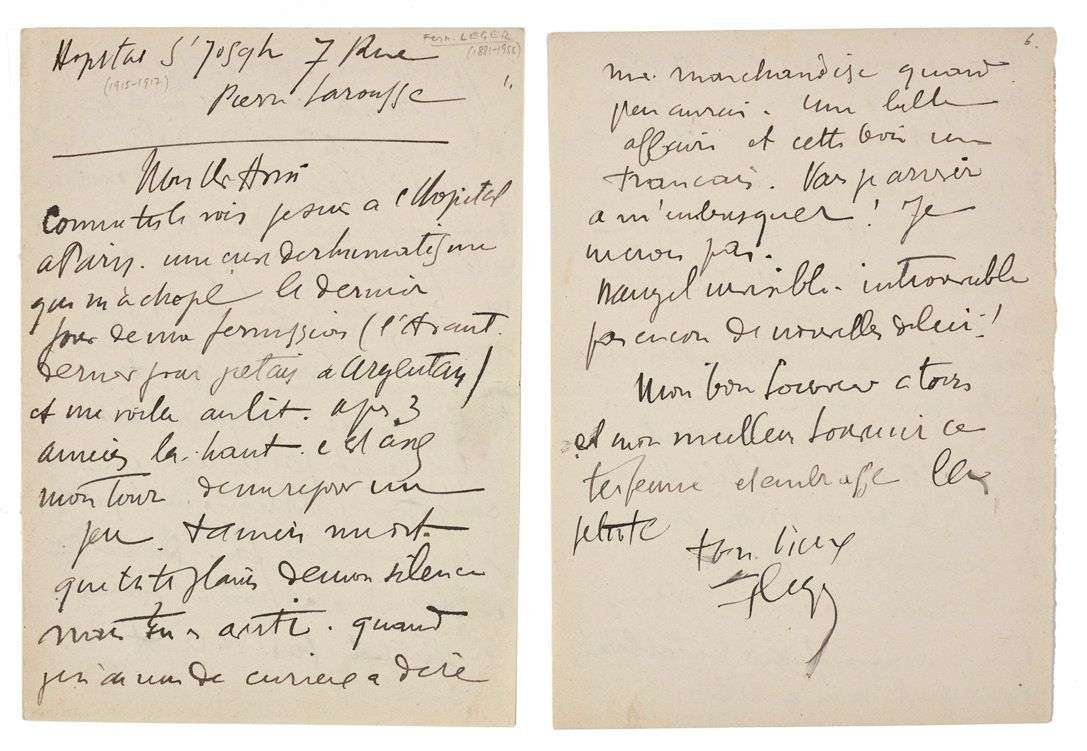 Hopital St Joseph 7 Rue
Pierre Larousse
Fern. LEGER
(1881-1955)
(1915-1917)
1.
Mon Ami
Comme tu le vois je suis a l'Hopital
a Paris. une crise de rhumatisme
qui m'a chopé le dernier
jour de ma permission (l'Avant
dernier jour j'etais a Argentan)
et me voila au lit. apres 3
années la-haut. c'est assez
mon tour de me reposer un
peu. tu m'ecris
que tu te plains de mon silence
mais quand
je n'ai rien de curieux a dire
6.
ma marchandise quand
j'en aurai. une belle
affaire et cette fois un
Francais. Vas parvenir
a m'embusquer! Je
ne crois pas.
invisible. introuvable
pas encore de nouvelles de lui!
Mon bon souvenir a tous
et mon meilleur souvenir a
ta femme et embrasse les
petits
ton vieux
FLeger